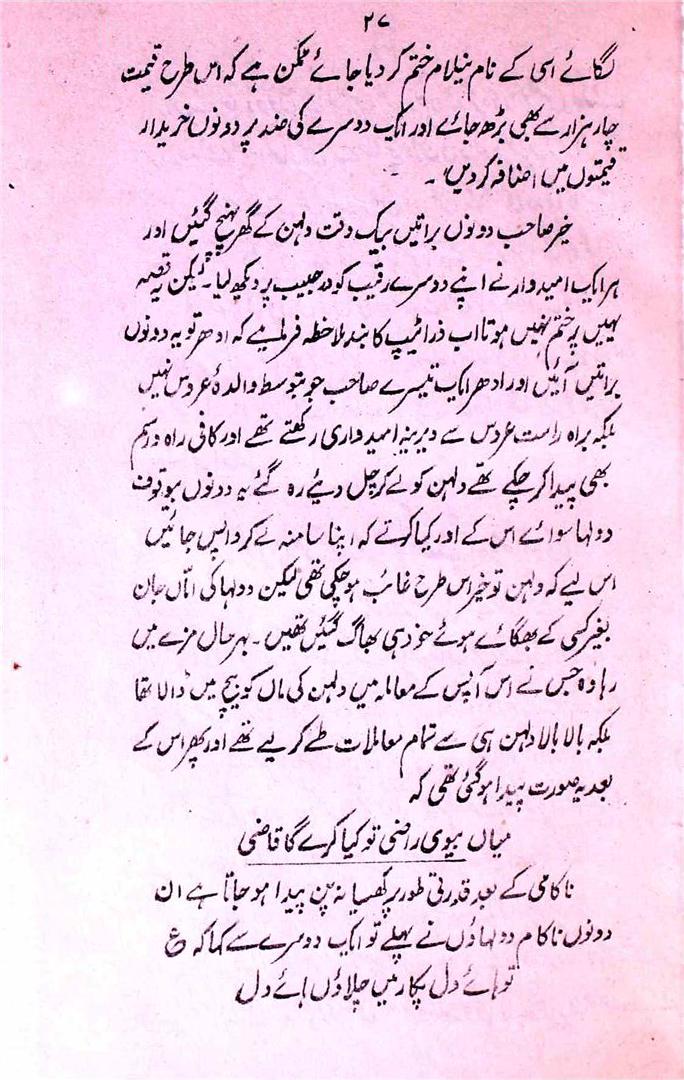 ۲۷
لگائے اسی کے نام نیلام ختم کر دیا جائے ممکن ہے کہ اس طرح قیمت
چار ہزار سے بھی بڑھ جائے اور ایک دوسرے کی ضد پر دونوں خریدار
قیمتوں میں اضافہ کر دیں۔
خیر صاحب دونوں براتیں بیک وقت دلہن کے گھر پہنچ گئیں اور
ہر ایک امیدوار نے اپنے دوسرے رقیب کو در حبیب پر دیکھ لیا۔ لیکن یہ قصہ
یہیں پر ختم نہیں ہوتا اب ذرا ٹیپ کا بند ملاحظہ فرمایئے کہ ادھر تو یہ دونوں
براتیں آئیں اور ادھر ایک تیسرے صاحب جو بتوسط والدۂ عروس نہیں
بلکہ براہ راست عروس سے دیرینہ امیدواری رکھتے تھے اور کافی راہ و رسم
بھی پیدا کر چکے تھے دلہن کو لے کر چل دیئے رہ گئے یہ دونوں بیوقوف
دولہا سوائے اس کے اور کیا کرتے کہ اپنا سا منہ لے کر واپس جائیں
اس لیے کہ دلہن تو خیر اس طرح غائب ہو چکی تھی لیکن دولہا کی اماں جان
بغیر کسی کے بھگائے ہوئے خود ہی بھاگ گئیں تھیں۔ بہر حال مزے میں
رہا وہ جس نے اس آپس کے معاملہ میں دلہن کی ماں کو بیچ میں ڈالا تھا
بلکہ بالا بالا دلہن ہی سے تمام معاملات طے کر لیے تھے اور پھر اس کے
بعد یہ صورت پیدا ہو گئی تھی کہ
میاں بیوی راضی تو کیا کرے گا قاضی
ناکامی کے بعد قدرتی طور پر کھسیانہ پن پیدا ہو جاتا ہے ان
دونوں ناکام دولہاؤں نے پہلے تو ایک دوسرے سے کہا کہ ع
تو ہائے دل پکار میں چلاؤں ہائے دل